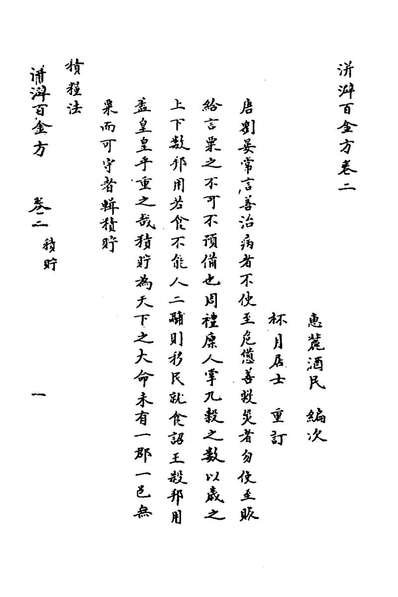 洴澼百金方卷二
惠麓酒民 編次
杯月居士 重訂
唐劉晏常言善治病者不使至危憊善救災者勿使至賑
給言粟之不可不預備也周禮廩人掌九穀之數以歲之
上下数邦用若食不能人二鬴則移民就食詔王殺邦用
蓋皇皇乎重之哉積貯為天下之大命未有一郡一邑無
粟而可守者輯積貯
積糧法
洴澼百金方 卷二 積貯 一